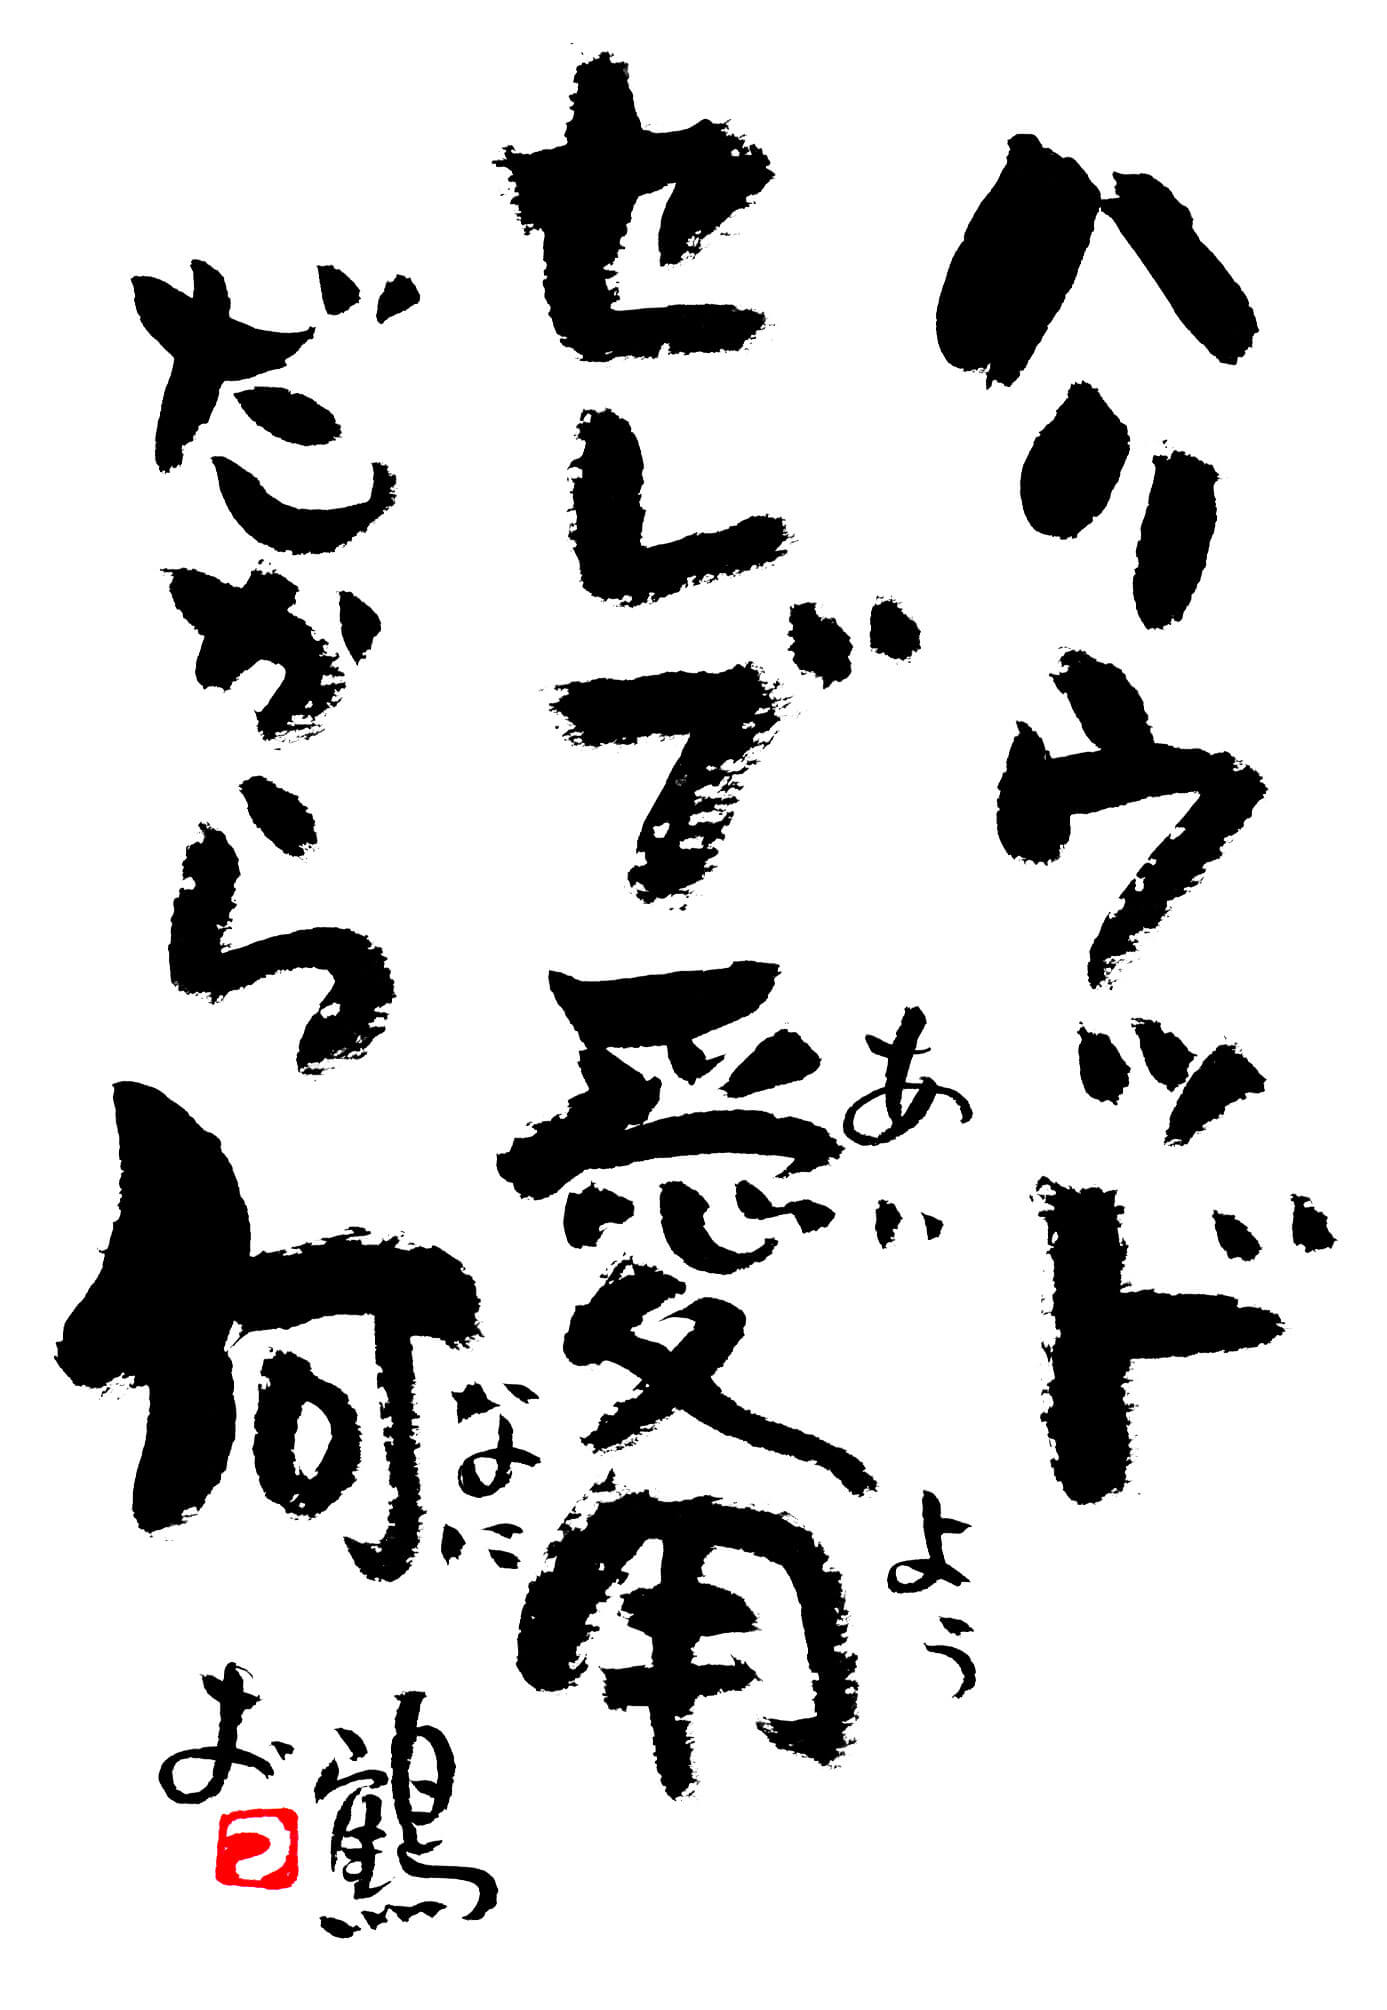 ハリウッド
セレブ愛用
あい
よう
だから何
なに
鶴
お
つ